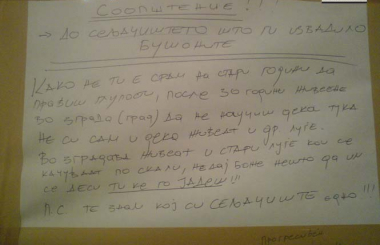 СООПШТЕНИЕ!
→ ДО СЕЉАЧИШТЕТО ШТО ГИ ИЗВАДИЛО
БУШОНИТЕ
КАКО НЕ ТИ Е СРАМ НА СТАРИ ГОДИНИ ДА
ПРАВИШ ГЛУПОСТИ, ПОСЛЕ 30 ГОДИНИ ЖИВЕЕЊЕ
ВО ЗГРАДА (ГРАД) ДА НЕ НАУЧИШ ДЕКА ТУКА
НЕ СИ САМ И ДЕКА ЖИВЕАТ И ДР. ЛУЃЕ.
ВО ЗГРАДАВА ЖИВЕАТ И СТАРИ ЛУЃЕ КОИ СЕ
КАЧУВААТ ПО СКАЛИ, НЕДАЈ БОЖЕ НЕШТО ДА ИМ
СЕ ДЕСИ ТИ ЌЕ ГО ЈАДЕШ!!
П.С. ТЕ ЗНАМ КОЈ СИ СЕЉАЧИШТЕ ЕДНО!!!